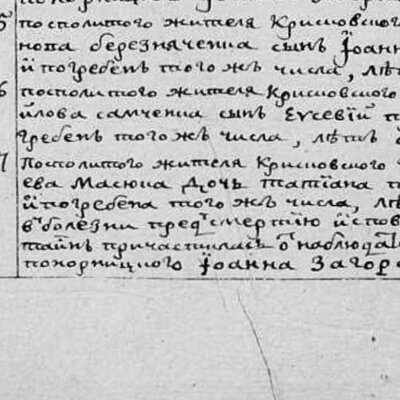 5 посполитого жителя Крисковског
нова березняченка сынъ Їоанн
й погребенъ того жъ числа, лѣт
6 посполитого жителя Крисковского
йлова самченка сынъ Еусевїй
гребенъ того жъ числа, лѣтъ
7 посполитого жителя Крисковского
ева Масюка дочь татїана
й погребена того жъ числа, лѣ
въ болезни предъ смертїю йспов
таинъ причастилась ѿ наблюда
понорницкого Їоанна Загор